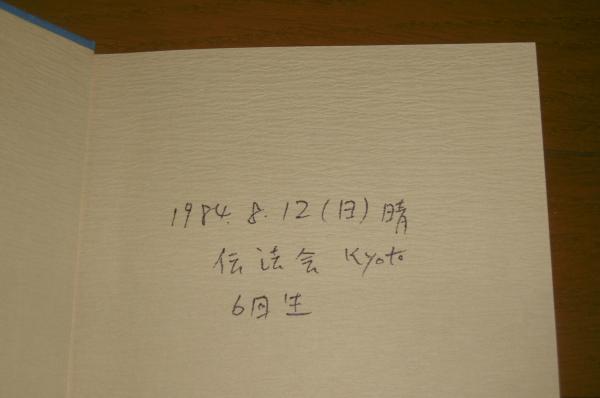 1984. 8. 12 (日) 晴
伝法会 Kyoto
6回生